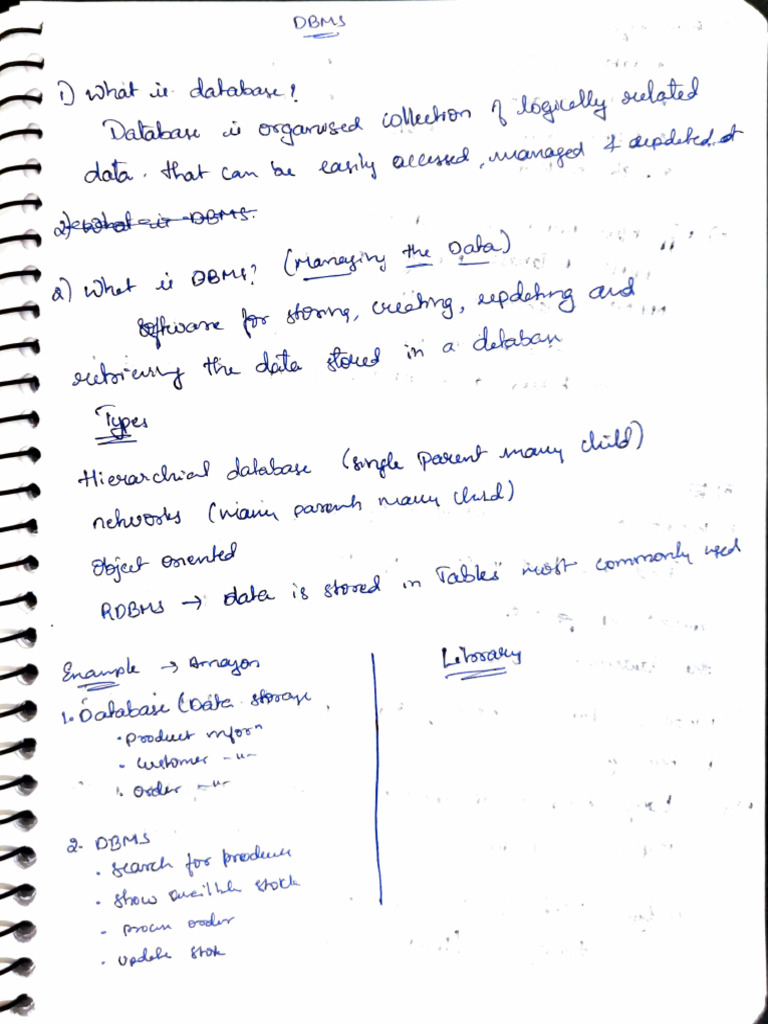 DBMS
1) What is database?
Database is organised collection of logically related
data. that can be easily accessed, managed & updated.
2) What is DBMS.
2) What is DBMS? (Managing the Data)
Software for storing, creating, updating and
retrieving the data stored in a databas
Types
Hierarchial database (single parent many child)
networks (many parents many child)
Object oriented
RDBMS → data is stored in "Tables" most commonly used
Example → Amazon
1. Database (Data storage
• product inforⁿ
• Customer -"-
• Order -"-
2. DBMS
• search for products
• show availble stock
• process order
• update stok
Library